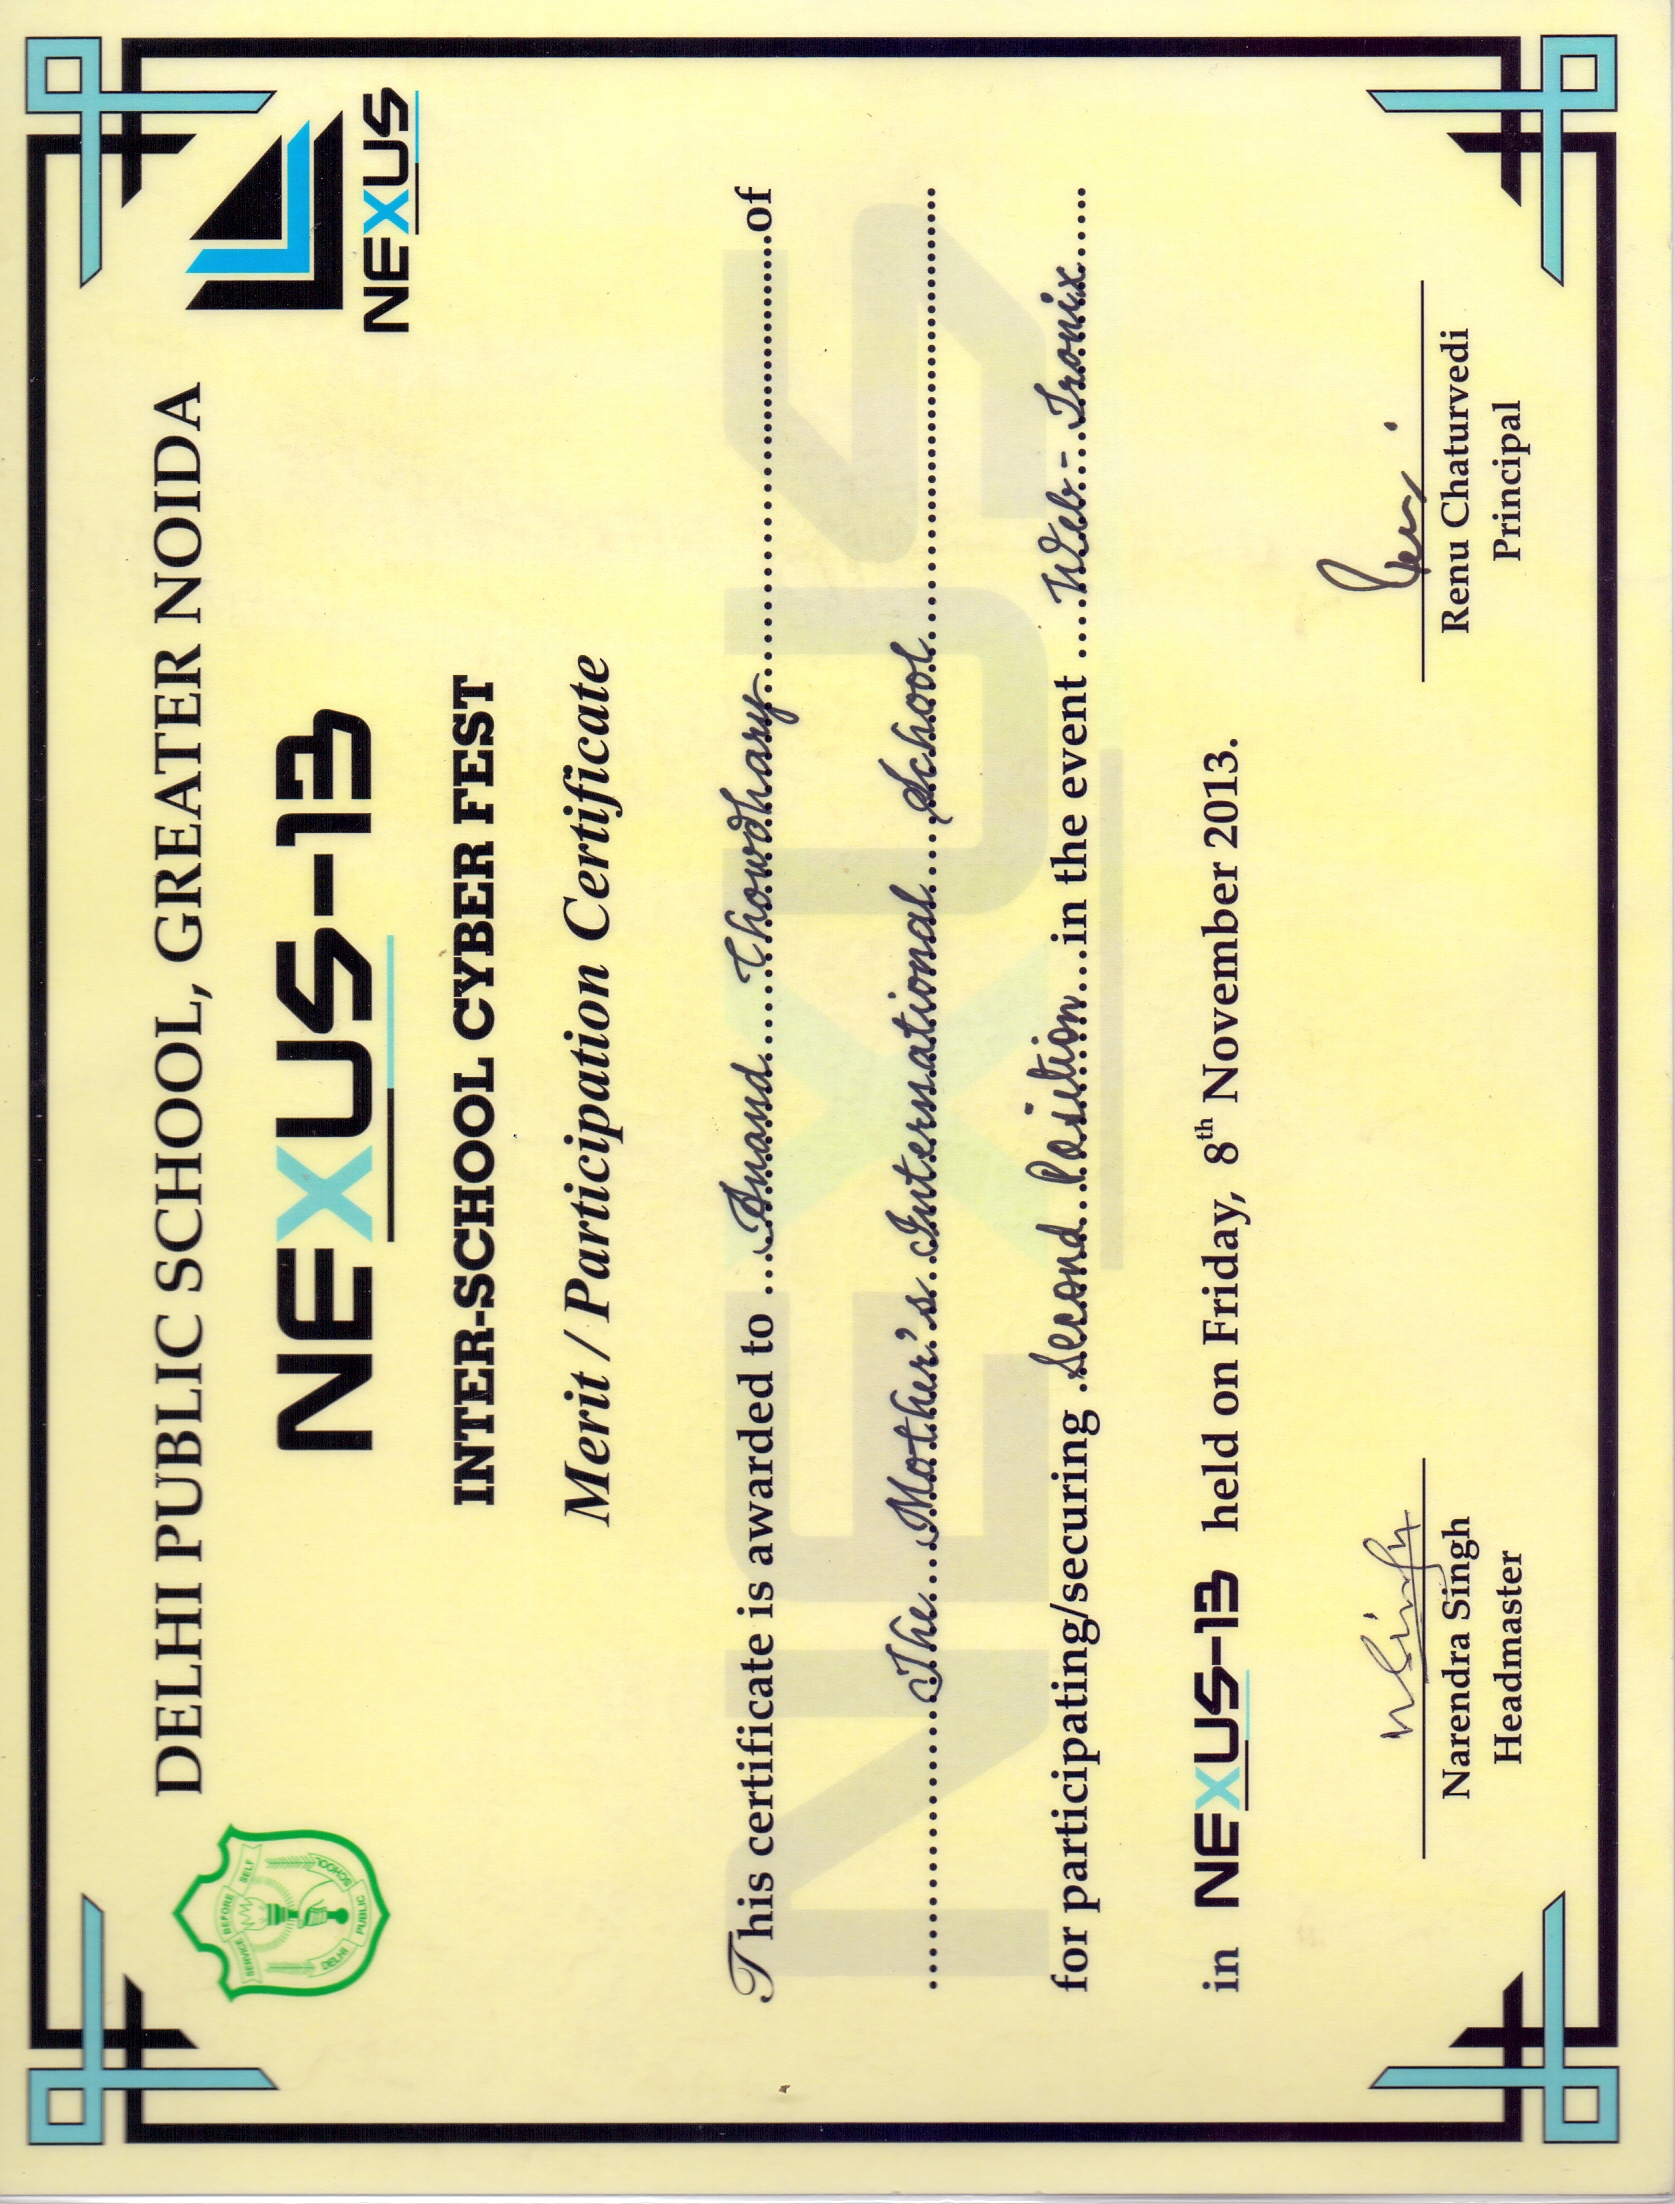 DELHI PUBLIC SCHOOL, GREATER NOIDA
SERVICE BEFORE SELF
DELHI PUBLIC SCHOOL
NEXUS-13
NEXUS
INTER-SCHOOL CYBER FEST
Merit / Participation Certificate
This certificate is awarded to Anand Chowdhary of
The Mother's International School
for participating/securing Second Position in the event Web-Tronix
in NEXUS-13 held on Friday, 8th November 2013.
NEXUS
N Singh
Narendra Singh
Renu Chaturvedi
Headmaster
Principal